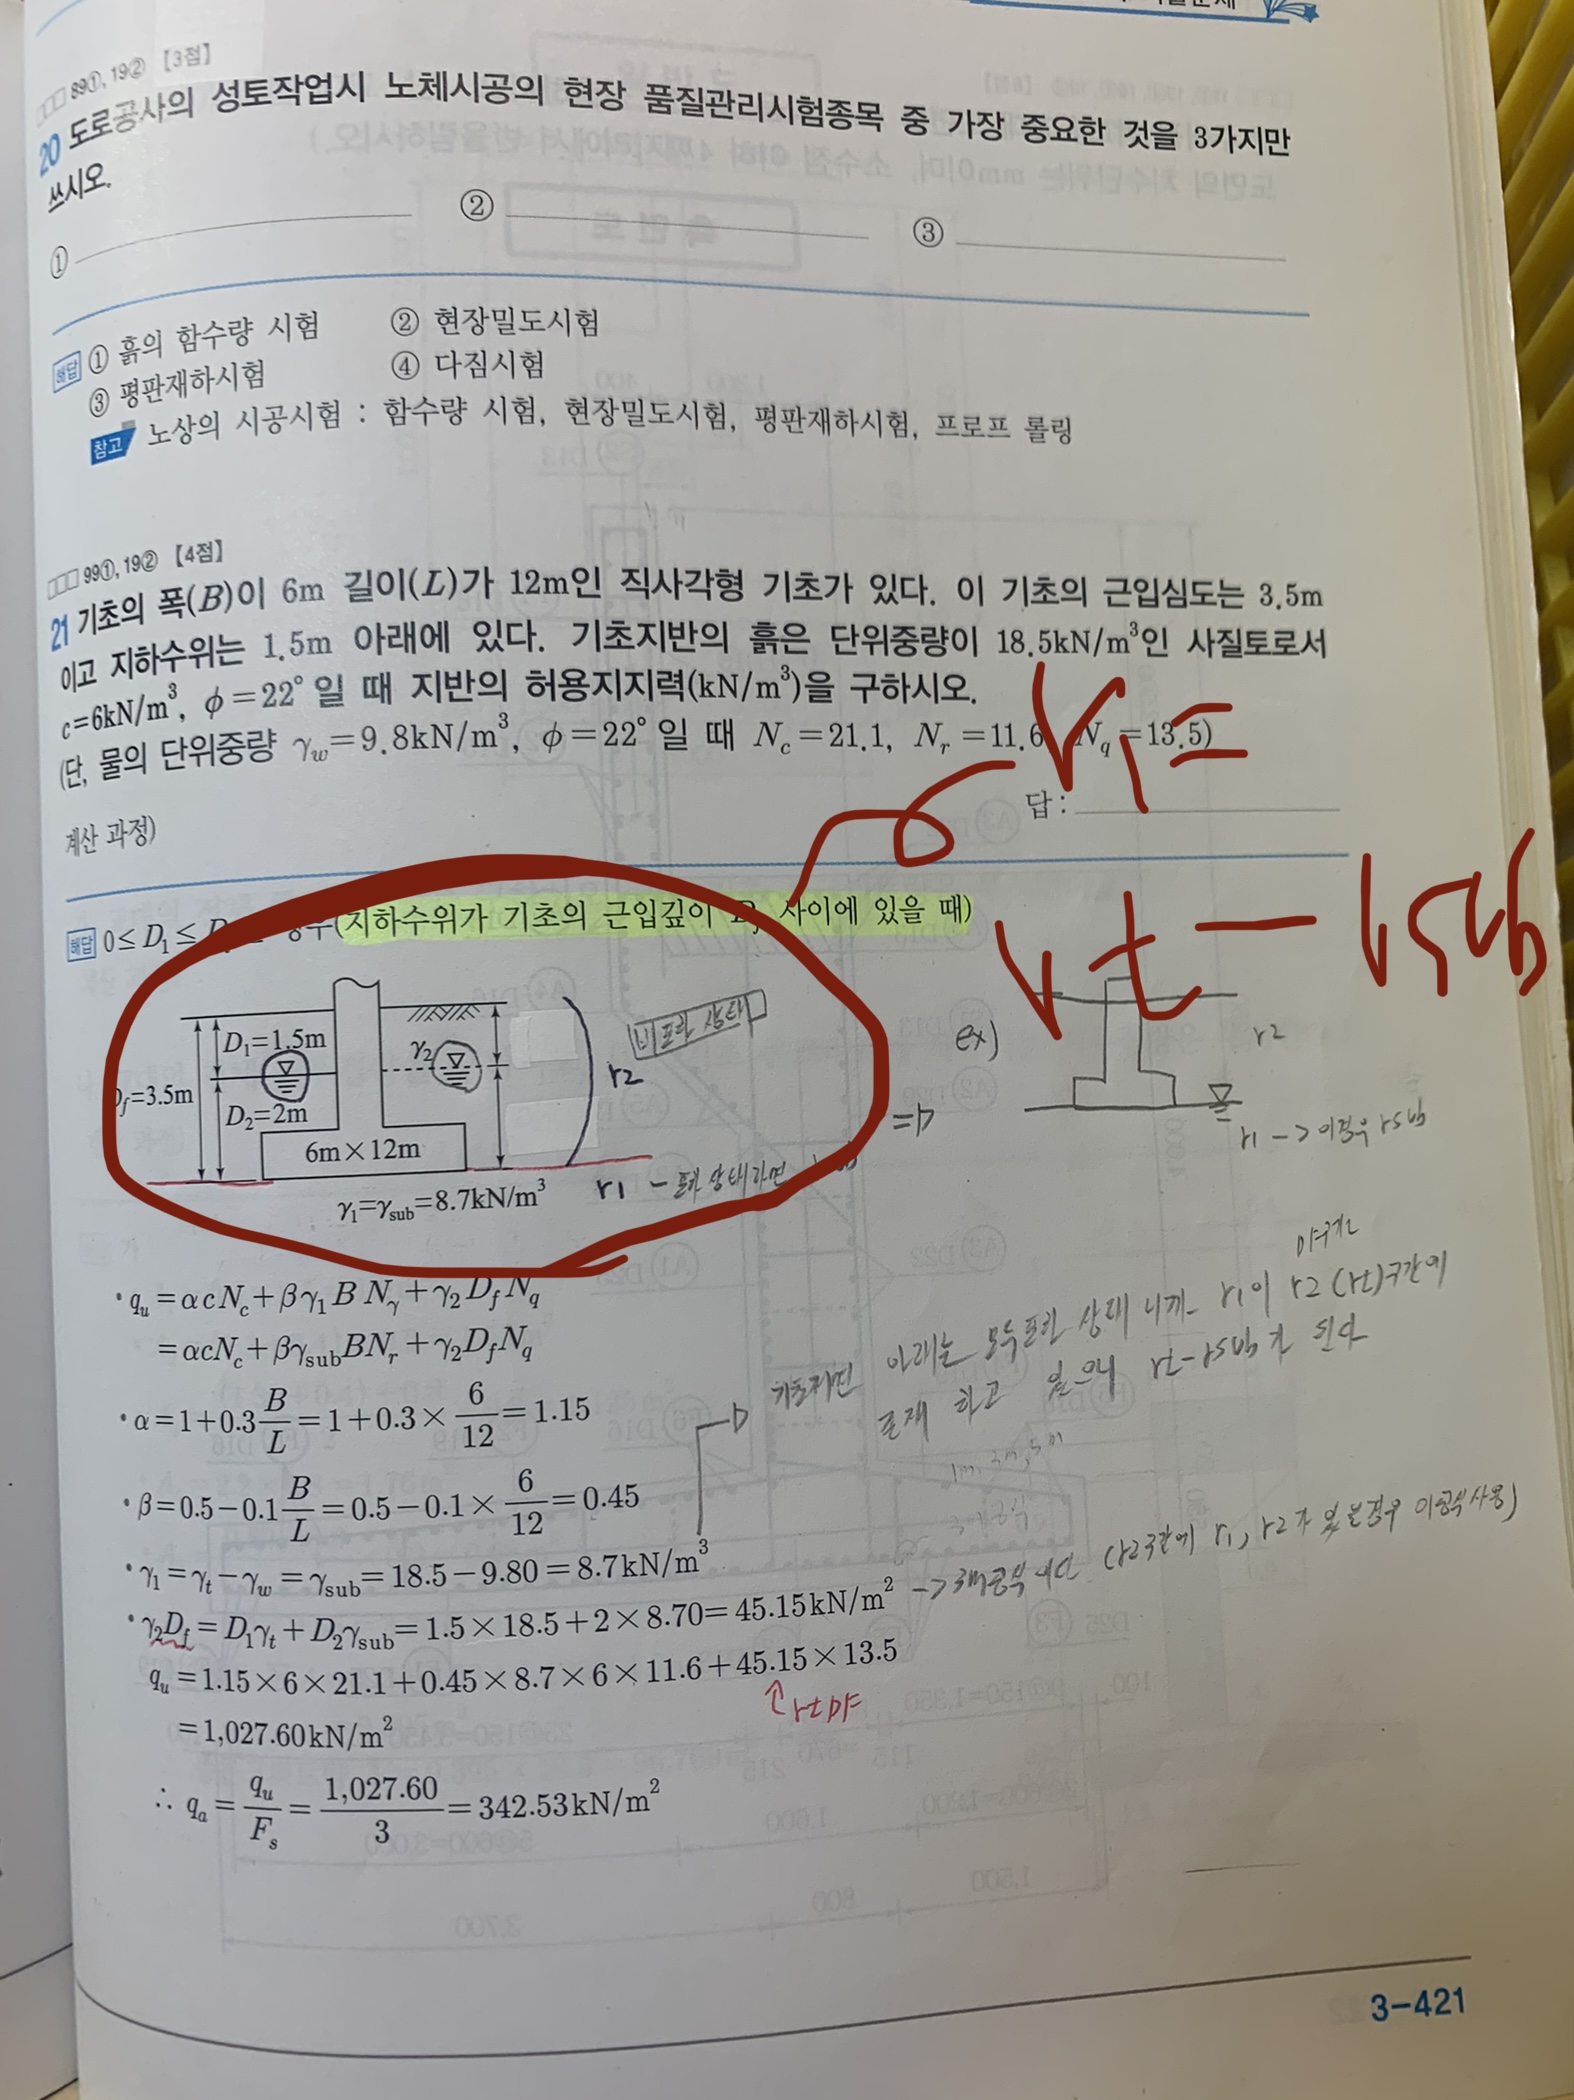 □□□ 89①, 19② 【3점】
20 도로공사의 성토작업시 노체시공의 현장 품질관리시험종목 중 가장 중요한 것을 3가지만
쓰시오.
① ② ③
해답 ① 흙의 함수량 시험 ② 현장밀도시험
③ 평판재하시험 ④ 다짐시험
참고 노상의 시공시험 : 함수량 시험, 현장밀도시험, 평판재하시험, 프로프 롤링
□□□ 99①, 19② 【4점】
21 기초의 폭(B)이 6m 길이(L)가 12m인 직사각형 기초가 있다. 이 기초의 근입심도는 3.5m
이고 지하수위는 1.5m 아래에 있다. 기초지반의 흙은 단위중량이 18.5kN/m³인 사질토로서
c=6kN/m³, ϕ=22°일 때 지반의 허용지지력(kN/m³)을 구하시오.
(단, 물의 단위중량 γw=9.8kN/m³, ϕ=22°일 때 Nc=21.1, Nr=11.6 Nq=13.5)
r1=
답 :
계산 과정)
rt - rsub
해답 0≤D1≤ (지하수위가 기초의 근입깊이 Df 사이에 있을 때)
D1=1.5m
γ2
Df=3.5m
D2=2m
6m×12m
γ1=γsub=8.7kN/m³
비포화 상태
r2
r1 - 포화상태라면
ex)
r2
r1 -> 이경우 rsub
•qu=αcNc+βγ1BNγ+γ2DfNq
=αcNc+βγsubBNr+γ2DfNq
•α=1+0.3B/L=1+0.3×6/12=1.15
•β=0.5-0.1B/L=0.5-0.1×6/12=0.45
기초저면 아래는 모두 포화 상태 니까 r1이 r2 (rt)구간에
존재 하고 있으니 rt-rsub가 된다
•γ1=γt-γw=γsub=18.5-9.80=8.7kN/m³
•γ2Df=D1γt+D2γsub=1.5×18.5+2×8.70=45.15kN/m² -> (r2구간에 r1, r2가 있는경우 이공식사용)
qu=1.15×6×21.1+0.45×8.7×6×11.6+45.15×13.5
=1,027.60kN/m²
∴ qa=qu/Fs=1,027.60/3=342.53kN/m²
3-421